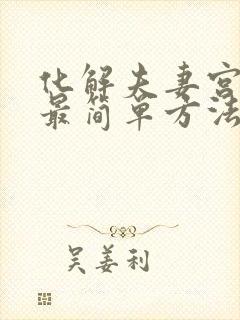 化解夫妻宫
最简单方法
吴姜利